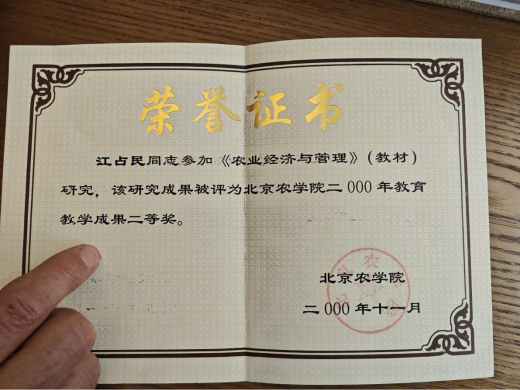 荣誉证书
江占民同志参加《农业经济与管理》(教材)
研究，该研究成果被评为北京农学院二000年教育
教学成果二等奖。
北京农学院
二000年十一月